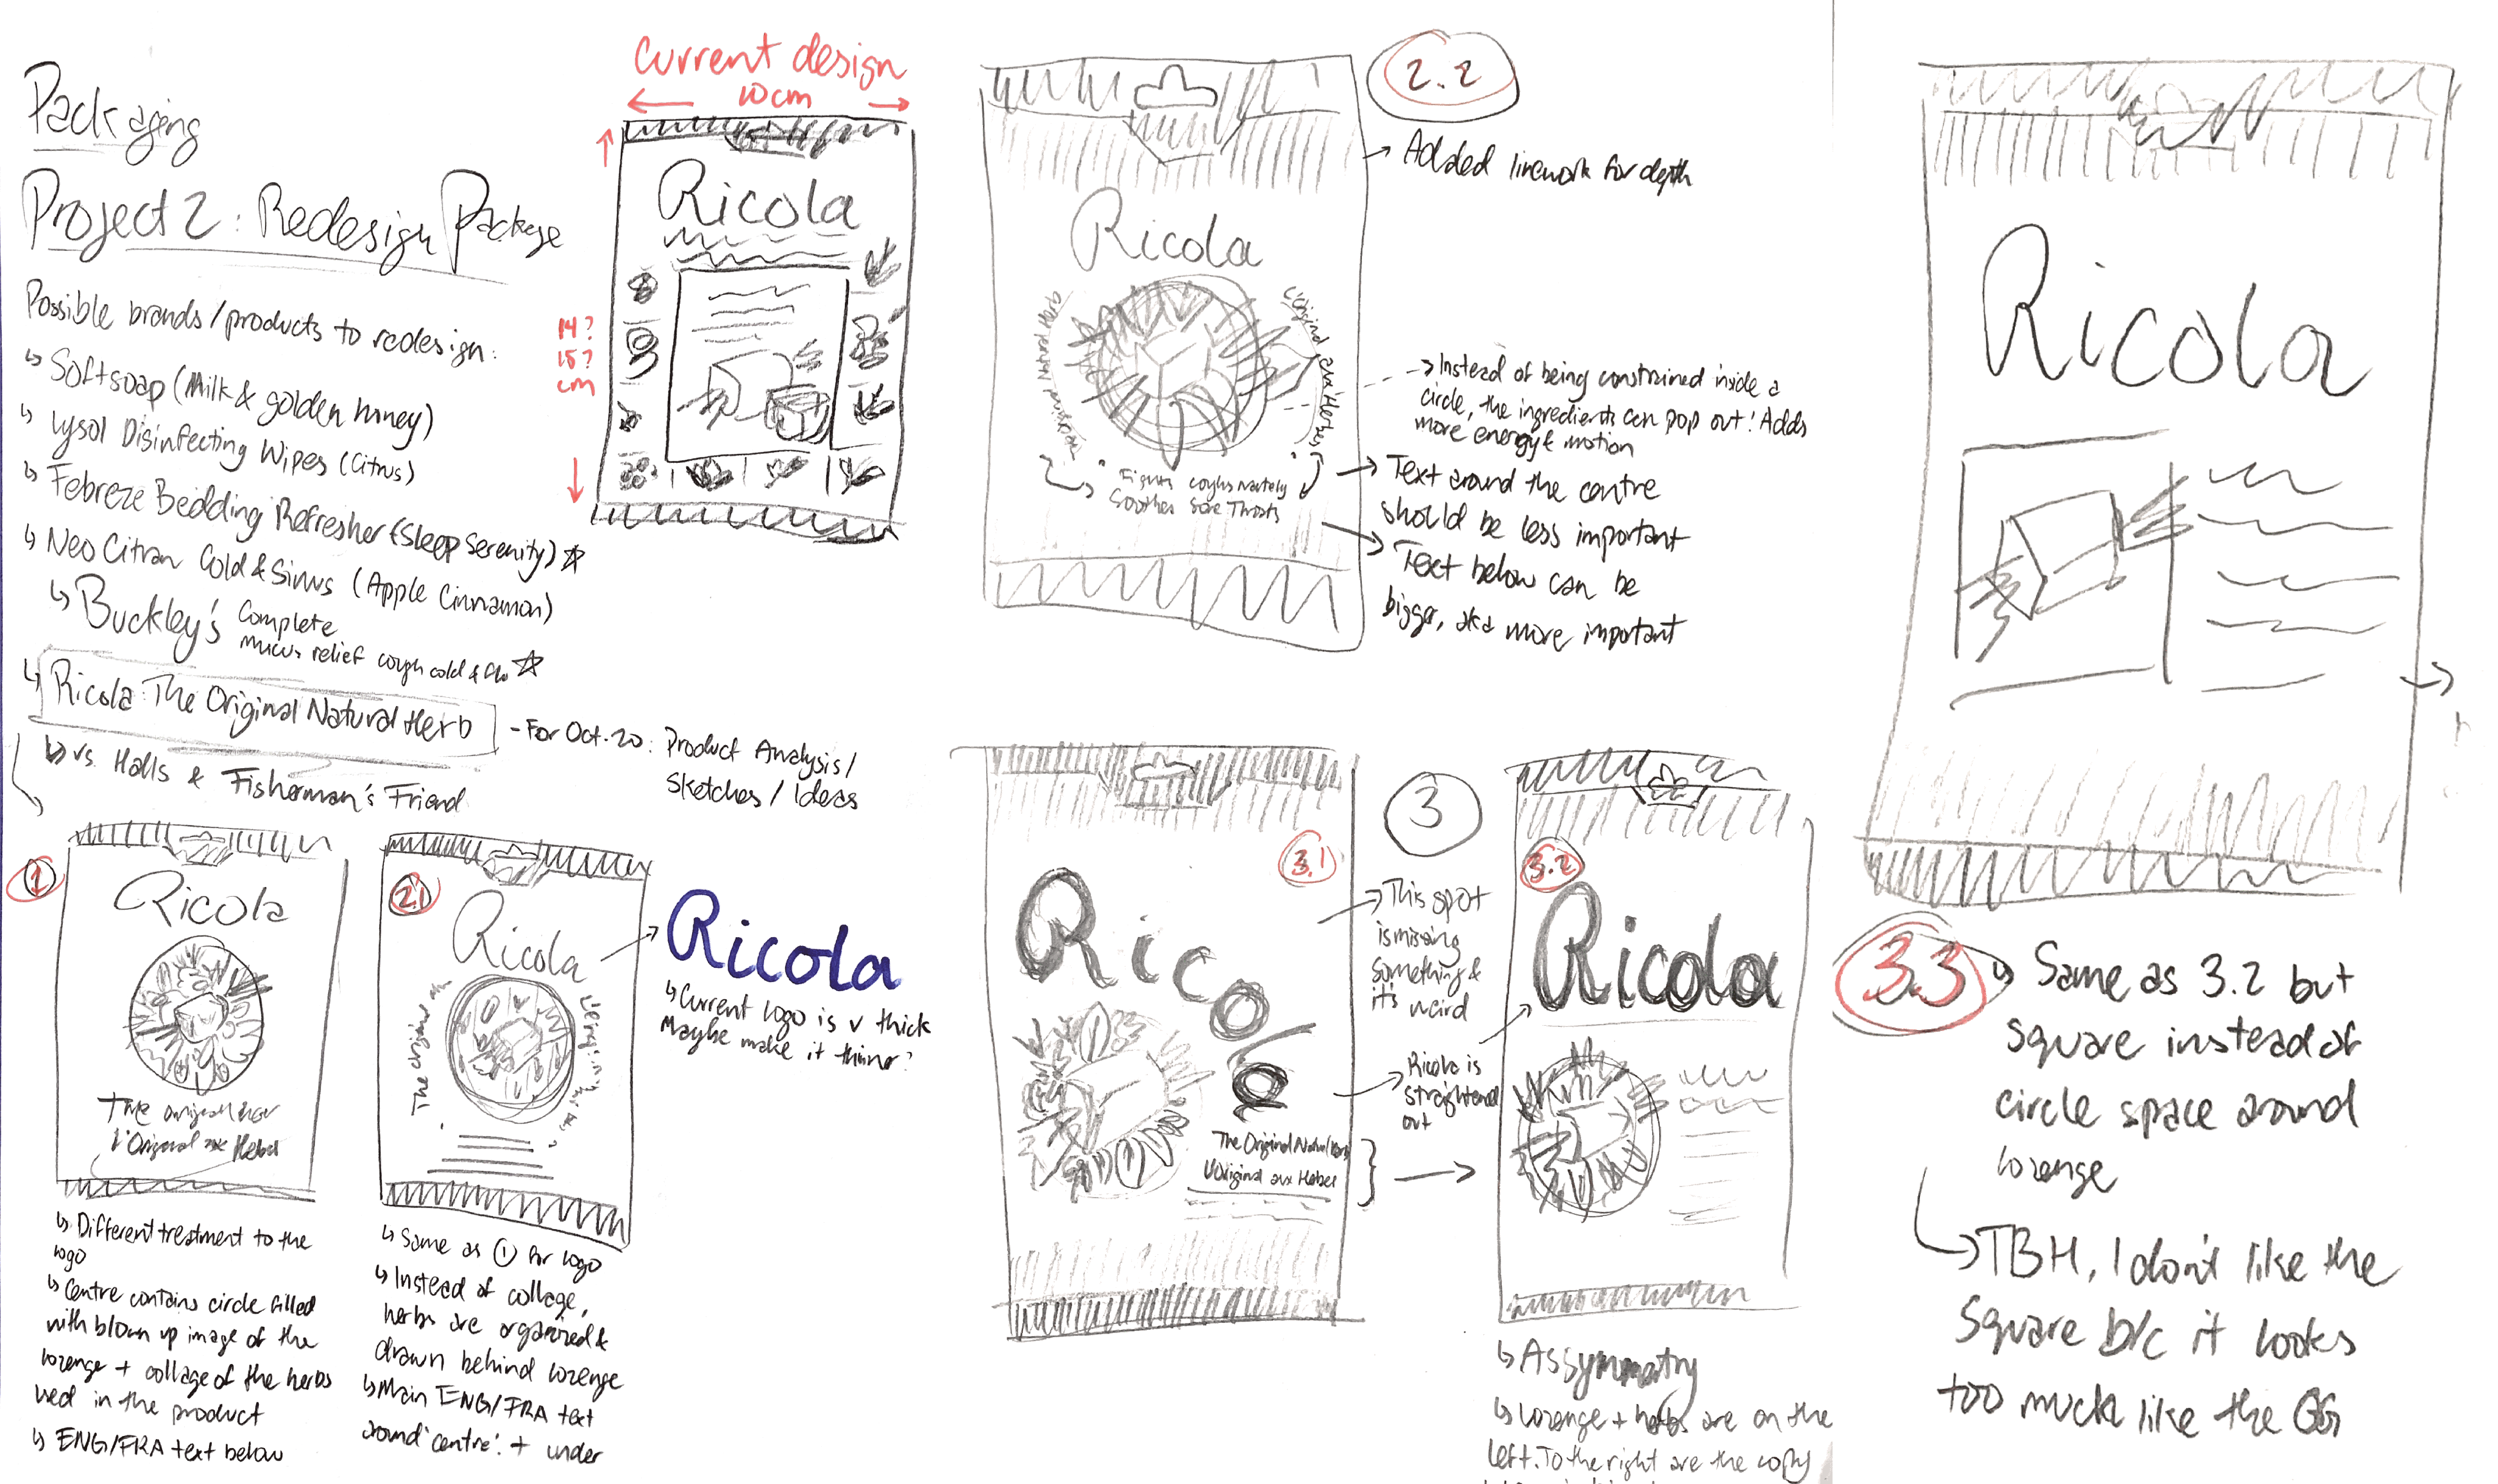 Packaging
Project 2: Redesign Package
Possible brands/products to redesign:
↳ Softsoap (Milk & golden honey)
↳ Lysol Disinfecting Wipes (Citrus)
↳ Febreze Bedding Refresher (Sleep Serenity) ☆
↳ Neo Citran Cold & Sinus (Apple Cinnamon)
↳ Buckley's Complete
mucus relief cough cold & flu ☆
↳ Ricola: The Original Natural Herb
- For Oct. 20: Product Analysis/
Sketches / Ideas
↳ vs. Halls & Fisherman's Friend
Current design
10cm
14?
15?
cm
Ricola
1
Ricola
The original
L'Original aux Herbes
↳ Different treatment to the
logo
↳ Centre contains circle filled
with blown up image of the
lozenge + collage of the herbs
used in the product
↳ ENG/FRA text below
2.1
Ricola
The original
Ricola
↳ Current logo is v thick
Maybe make it thinner?
↳ Same as ① for logo
↳ Instead of collage,
herbs are organized &
drawn behind lozenge
↳ Main ENG/FRA text
around 'centre' + under
2.2
→ Added linework for depth
Ricola
L'Original aux Herbes
Fights coughs naturally
Soothes Sore Throats
→ Instead of being constrained inside a
circle, the ingredients can pop out! Adds
more energy & motion
→ Text around the centre
should be less important
→ Text below can be
bigger, aka more important
3
3.1
Ricola
The Original Natural Herb
L'Original aux Herbes
→ This spot
is missing
something &
it's weird
→ Ricola is
straightened
out
3.2
Ricola
↳ Assymmetry
↳ lozenge + herbs are on the
left. To the right are the copy
Ricola
3.3
↳ Same as 3.2 but
square instead of
circle space around
lozenge
→ TBH, I don't like the
square b/c it looks
too much like the OG